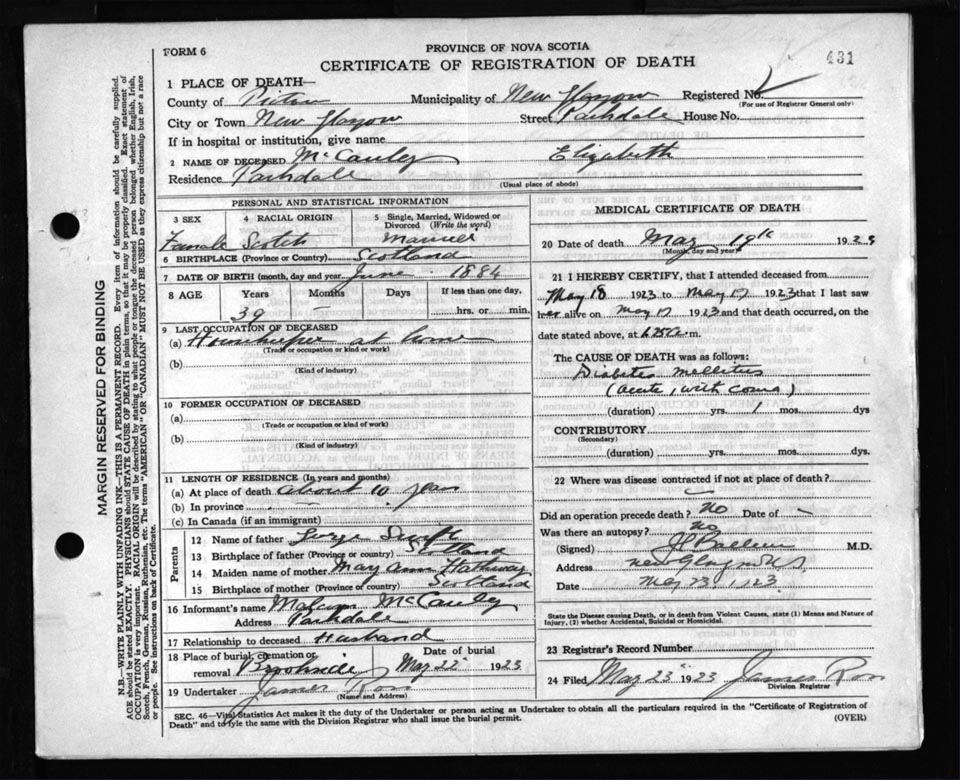 FORM 6
PROVINCE OF NOVA SCOTIA
CERTIFICATE OF REGISTRATION OF DEATH
431
1 PLACE OF DEATH—
County of Pictou Municipality of New Glasgow Registered No.
(For use of Registrar General only)
City or Town New Glasgow Street Parkdale House No.
If in hospital or institution, give name
2 NAME OF DECEASED McCauley Elizabeth
Residence Parkdale
(Usual place of abode)
PERSONAL AND STATISTICAL INFORMATION
3 SEX 4 RACIAL ORIGIN 5 Single, Married, Widowed or Divorced (Write the word)
Female Scotch Married
6 BIRTHPLACE (Province or Country) Scotland
7 DATE OF BIRTH (month, day and year) June 1884
8 AGE Years Months Days If less than one day,
39 — hrs. or min.
9 LAST OCCUPATION OF DECEASED
(a) Housekeeper at home
(Trade or occupation or kind or work)
(b)
(Kind of industry)
10 FORMER OCCUPATION OF DECEASED
(a)
(Trade or occupation or kind of work)
(b)
(Kind of industry)
11 LENGTH OF RESIDENCE (In years and months)
(a) At place of death about 10 years
(b) In province
(c) In Canada (if an immigrant)
Parents
12 Name of father George Swift
13 Birthplace of father (Province or country) Scotland
14 Maiden name of mother Mary Ann Hathway
15 Birthplace of mother (Province or country) Scotland
16 Informant's name McCauley
Address Parkdale
17 Relationship to deceased Husband
18 Place of burial, cremation or removal Brookside Date of burial May 22 1923
19 Undertaker James Ross
(Name and Address)
MEDICAL CERTIFICATE OF DEATH
20 Date of death May 19th 1923
(Month, day and year)
21 I HEREBY CERTIFY, that I attended deceased from
May 18 1923 to May 19 1923 that I last saw
her alive on May 19 1923 and that death occurred, on the
date stated above, at m.
The CAUSE OF DEATH was as follows:
Diabetes mellitus
(acute, with coma)
(duration) yrs. 1 mos. dys
CONTRIBUTORY
(Secondary)
(duration) yrs. mos. dys.
22 Where was disease contracted if not at place of death?
Did an operation precede death? no Date of —
Was there an autopsy? no
(Signed) M.D.
Address New Glasgow N.S.
Date May 23, 1923
State the Disease causing Death, or in death from Violent Causes, state (1) Means and Nature of
Injury, (2) whether Accidental, Suicidal or Homicidal.
23 Registrar's Record Number
24 Filed May 23 1923 James Ross
Division Registrar
SEC. 46—Vital Statistics Act makes it the duty of the Undertaker or person acting as Undertaker to obtain all the particulars required in the "Certificate of Registration of
Death" and to fyle the same with the Division Registrar who shall issue the burial permit.
(OVER)
MARGIN RESERVED FOR BINDING
N.B.—WRITE PLAINLY WITH UNFADING INK—THIS IS A PERMANENT RECORD. Every item of information should be carefully supplied.
AGE should be stated EXACTLY. PHYSICIANS should STATE CAUSE OF DEATH in plain terms, so that it may be properly classified. Exact statement of
OCCUPATION is very important. RACIAL ORIGIN will be described by stating to what people or tongue the deceased person belonged whether English, Irish,
Scotch, French, German, Russian, Ruthenian, etc. The terms "AMERICAN" or "CANADIAN" MUST NOT BE USED as they express citizenship but not a race
or people. See instructions on back of Certificate.